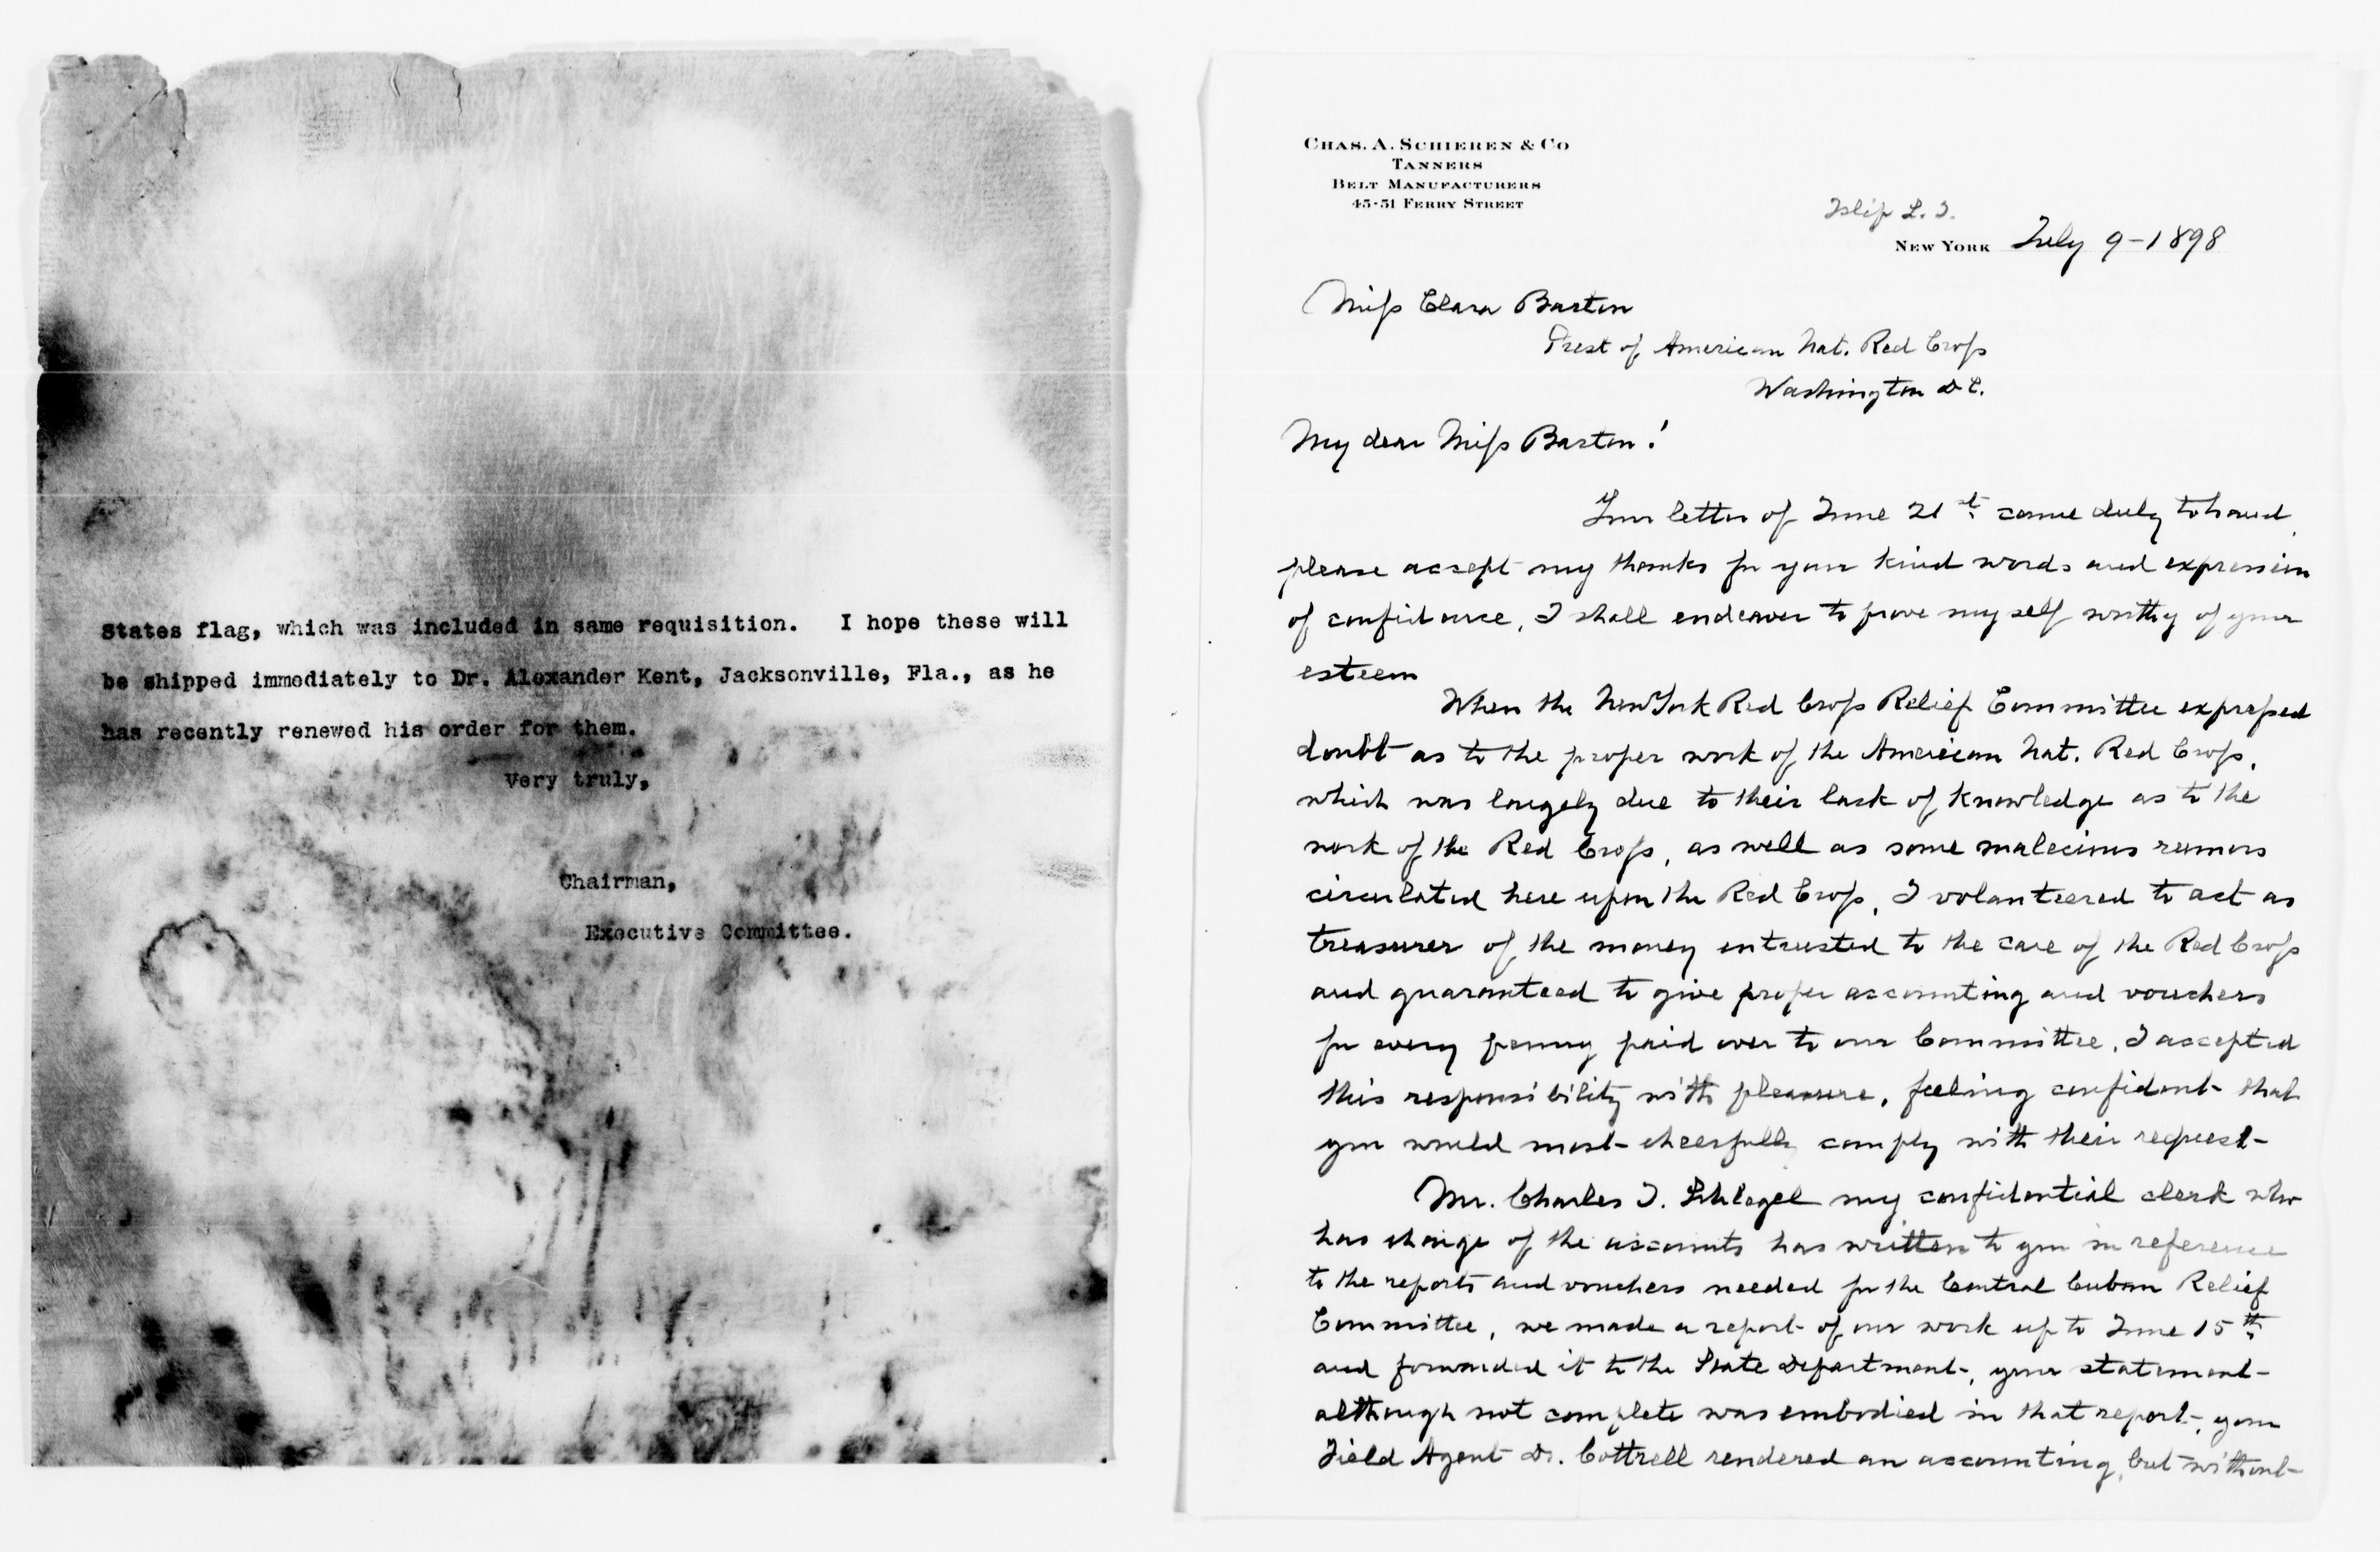 States flag, which was included in same requisition. I hope these will
be shipped immediately to Dr. Alexander Kent, Jacksonville, Fla., as he
has recently renewed his order for them.
Very truly,
Chairman,
Executive Committee.
CHAS. A. SCHIEREN & CO
TANNERS
BELT MANUFACTURERS
45-51 FERRY STREET
Islip L. I.
NEW YORK July 9-1898
Miss Clara Barton
Prest of American Nat. Red Cross
Washington D C.
My dear Miss Barton!
Your letter of June 21st. came duly to hand
please accept my thanks for your kind words and expression
of confidence, I shall endeavor to prove myself worthy of your
esteem
When the New York Red Cross Relief Committee expressed
doubt as to the proper work of the American Nat. Red Cross,
which was largely due to their lack of knowledge as to the
work of the Red Cross, as well as some malecious rumors
circulated here upon the Red Cross, I volanteered to act as
treasurer of the money entrusted to the care of the Red Cross
and guaranteed to give proper accounting and vouchers
for every penny paid over to our Committee, I accepted
this responsibility with pleasure, feeling confident that
you would most cheerfully comply with their request-
Mr. Charles I. Schlegel my confidential clerk who
has charge of the accounts has written to you in reference
to the reports and vouchers needed for the Central Cuban Relief
Committee, we made a report of our work up to June 15th.
and forwarded it to the State Department, your statement-
although not complete was embodied in that report, your
Field Agent Dr. Cottrell rendered an accounting, but without-